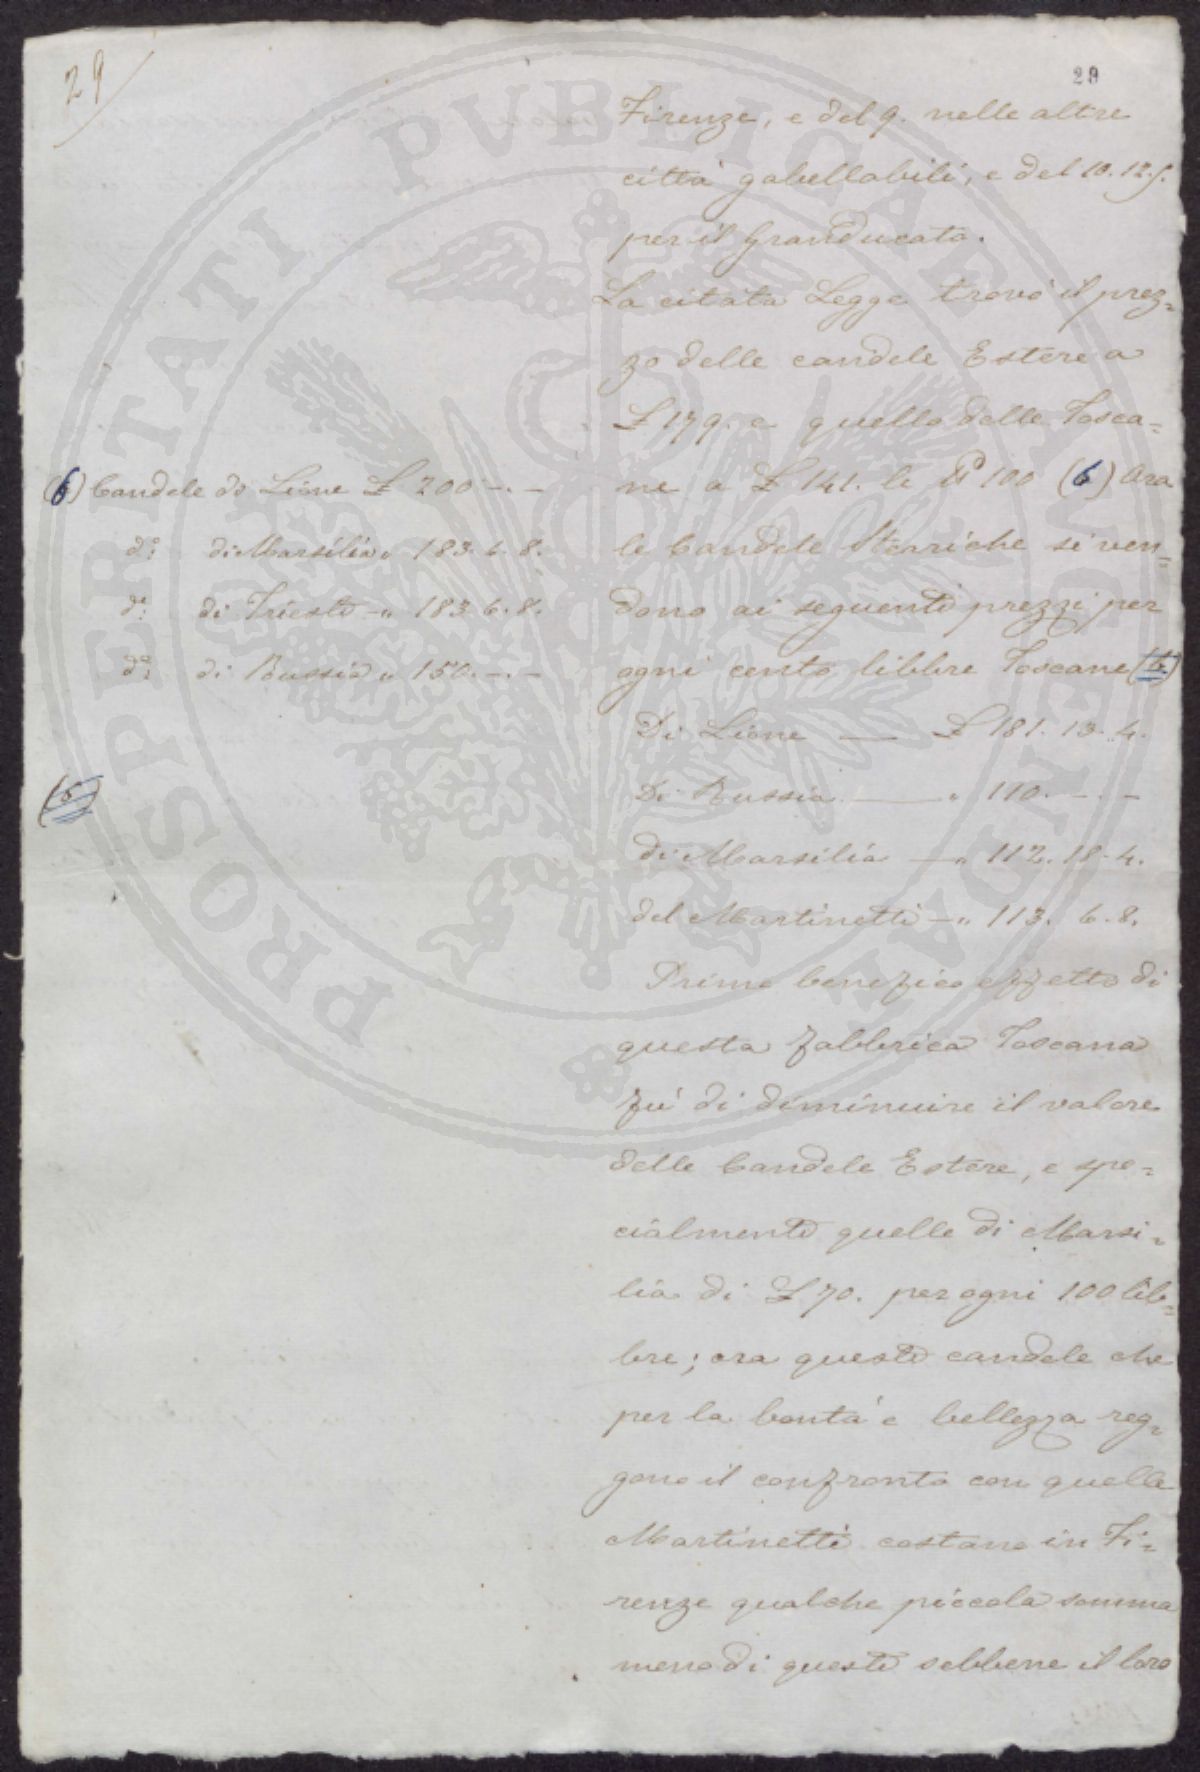 29
29
Firenze, e del 9. nelle altre
città gabellabili, e del 10. 12. f.
per il Granducato.
La citata Legge trovò il prez=
zo delle candele Estere a
£ 179. e quello delle Tosca=
ne a £ 141. le 100 (6) Ora
le Candele Steariche si ven=
dono ai seguenti prezzi per
ogni cento libbre Toscane (6)
Di Lione — £ 181. 13. 4.
Di Russia — " 110. — . —
di Marsilia — " 112. 18. 4.
del Martinetti — " 113. 6. 8.
Primo benefico effetto di
questa fabbrica Toscana
fù di diminuire il valore
delle Candele Estere, e spe=
cialmente quelle di Marsi=
lia di £ 70. per ogni 100 lib=
bre; ora queste candele che
per la bontà e bellezza reg=
gono il confronto con quelle
Martinetti costano in Fi=
renze qualche piccola somma
meno di queste sebbene il loro
(6) Candele di Lione £ 200 — . —
do: di Marsilia " 183. 6. 8.
do: di Trieste — " 183. 6. 8.
do: di Russia " 150. — . —
(6)
PROSPERITATI PVBLICAE AVGENDAE